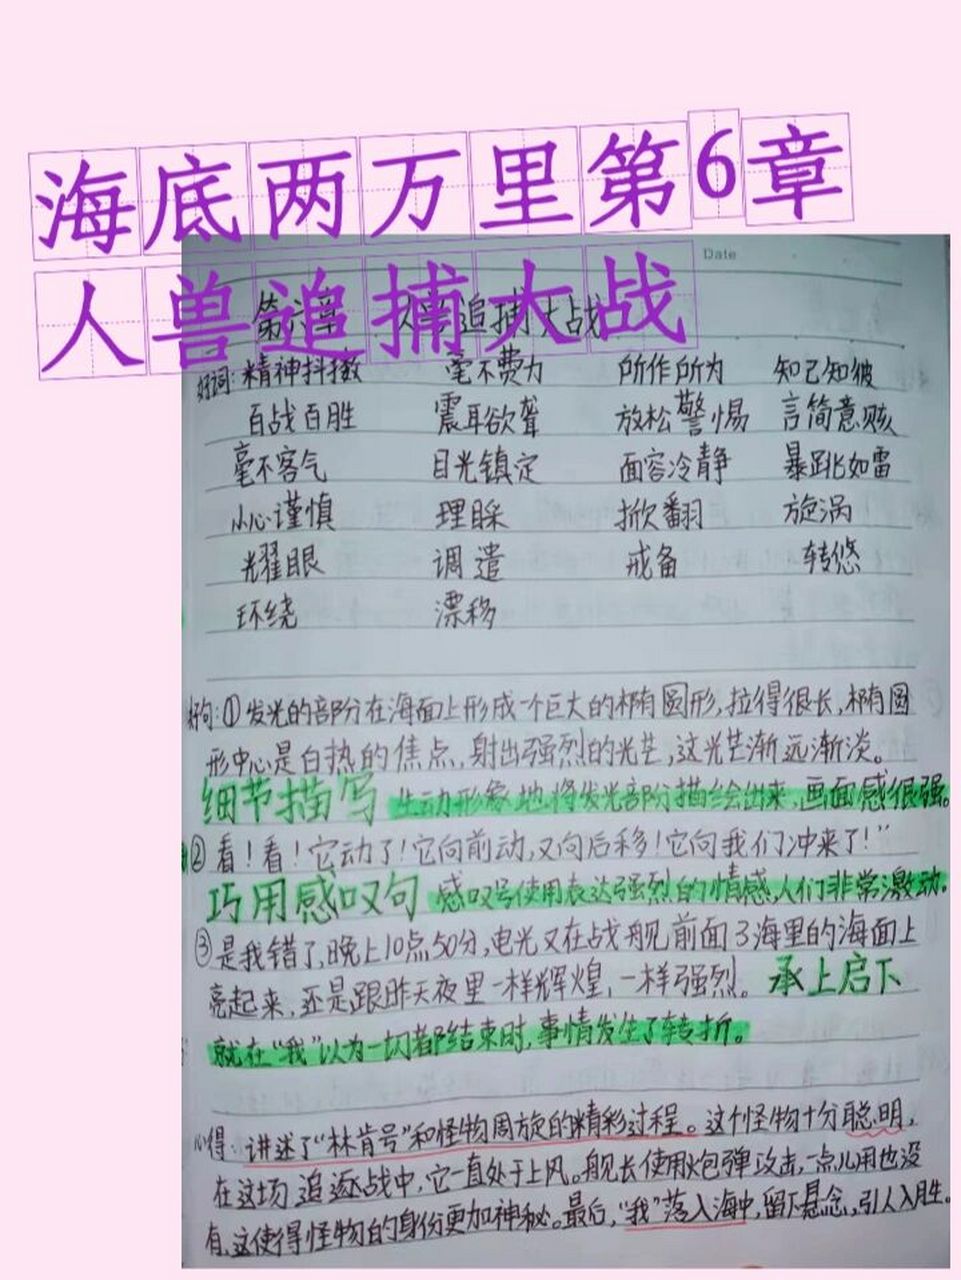 海底两万里第6章
人兽追捕大战
Date
第六章 人兽追捕大战
好词:精神抖擞 毫不费力 所作所为 知己知彼
百战百胜 震耳欲聋 放松警惕 言简意赅
毫不客气 目光镇定 面容冷静 暴跳如雷
小心谨慎 理睬 掀翻 旋涡
耀眼 调遣 戒备 转悠
环绕 漂移
好句:①发光的部分在海面上形成一个巨大的椭圆形,拉得很长,椭圆
形中心是白热的焦点,射出强烈的光芒,这光芒渐远渐淡。
细节描写 生动形象地将发光部分描绘出来,画面感很强。
②看!看!它动了!它向前动,又向后移!它向我们冲来了!”
巧用感叹句 感叹号使用表达强烈的情感,人们非常激动。
③是我错了,晚上10点50分,电光又在战舰前面3海里的海面上
亮起来,还是跟昨天夜里一样辉煌,一样强烈。 承上启下
就在“我”以为一切都结束时,事情发生了转折。
心得:讲述了“林肯号”和怪物周旋的精彩过程。这个怪物十分聪明,
在这场追逐战中,它一直处于上风。舰长使用炮弹攻击,一点儿用也没
有,这使得怪物的身份更加神秘。最后,“我”落入海中,留下悬念,引人入胜。